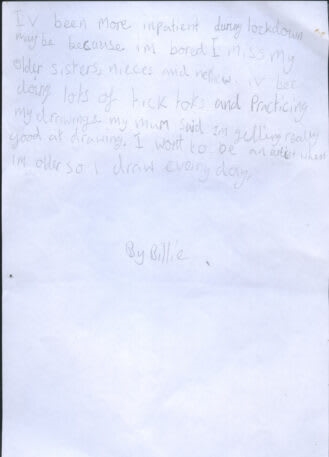 IV been more inpatient during lockdown
may be because im bored I miss my
older sisters, nieces and nephew. iv bee
doing lots of tick toks and Practicing
my drawings my mum said Im getting really
good at drawing. I want to be an artist when
im older so i draw every day.
By Billie